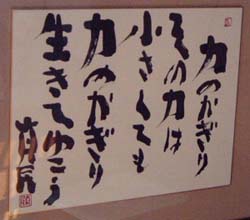 力のかぎり
その力は
小さくても
力のかぎり
生きてゆこう